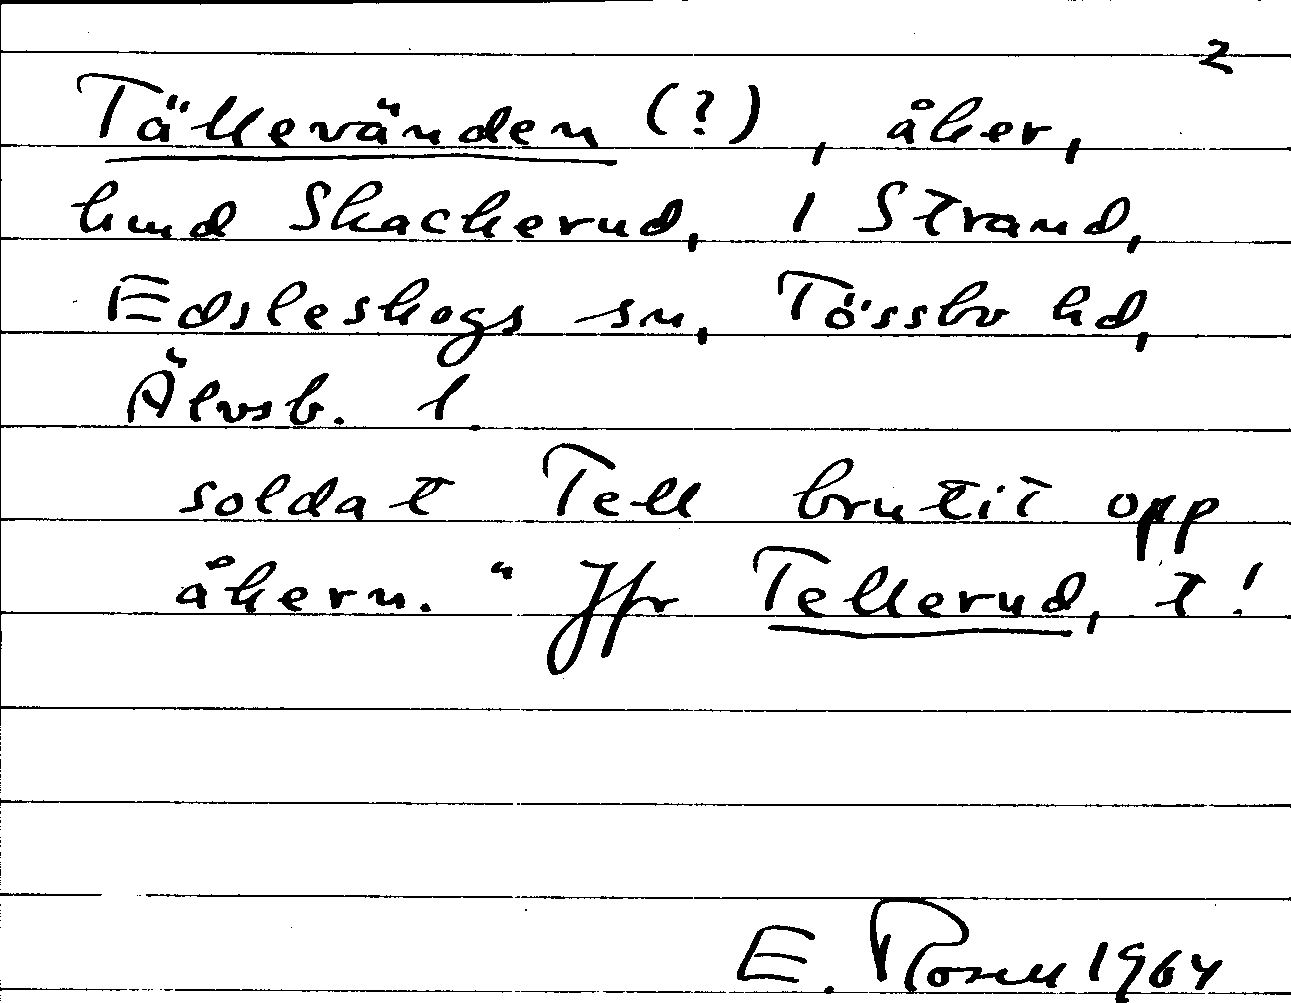 2
Tällevänden (?), åker,
hmd Skackerud, 1 Strand,
Edsleskogs sn, Tössbo hd,
Älvsb. l.
soldat Tell brutit opp
åkern." Jfr Tellerud, t!
E. Rosell 1964